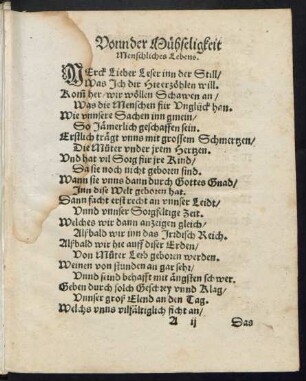 Vonn der Mühseligkeit
Menschliches Lebens.
MErck Lieber Leser inn der Still/
Was Ich dir Hie erzöhlen will.
Kom̃ her/ wir wöllen Schawen an/
Was die Menschen für Vnglück han.
Wie vnnsere Sachen inn gmein/
So Jämerlich geschaffen sein.
Erstlich trägt vnns mit grossem Schmertzen/
Die Můter vnder jrem Hertzen.
Vnd hat vil Sorg für jre Kind/
Da sie noch nicht geboren sind.
Wann sie vnns dann durch Gottes Gnad/
Inn dise Welt geboren hat.
Dann facht erst recht an vnser Leidt/
Vnnd vnser Sorgfältige Zeit.
Welches wir dann anzeigen gleich/
Alßbald wir inn das Irdisch Reich.
Alßbald wir hie auff diser Erden/
Von Můter Leib geboren werden.
Weinen von stunden an gar sehr/
Vnnd seind behafft mit ängsten schwer.
Geben durch solch Geschrey vnnd Klag/
Vnnser groß Elend an den Tag.
Welchs vnns vilfältiglich ficht an/
A ij Das